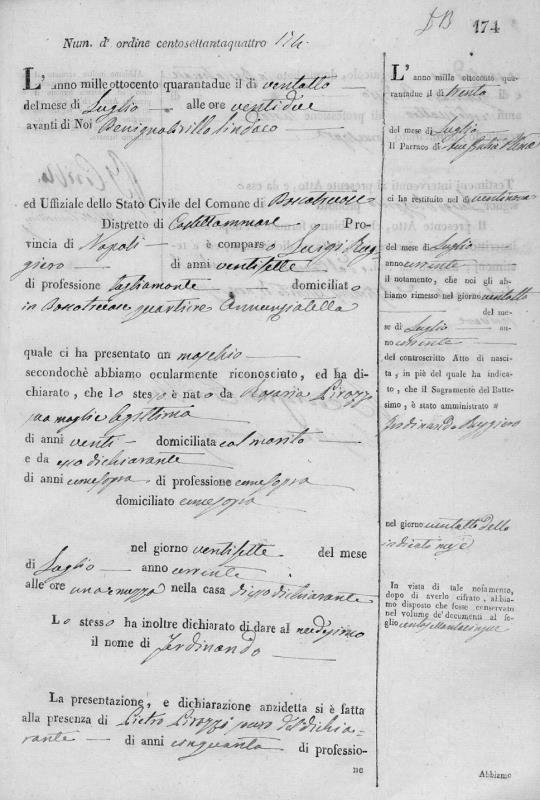 DB 174
Num. d' ordine centosettantaquattro 174.
L' anno mille ottocento quarantadue il dì ventotto
del mese di Luglio alle ore ventidue
avanti di Noi Benigno Sindaco
ed Uffiziale dello Stato Civile del Comune di Boscotrecase
Distretto di Castellammare Pro-
vincia di Napoli è comparso Luigi Rug
giero di anni ventisette
di professione Tagliamonte domiciliato
in Boscotrecase quartiere Annunziatella
quale ci ha presentato un maschio
secondochè abbiamo ocularmente riconosciuto, ed ha di-
chiarato, che lo stesso è nato da Rosaria Cirozzi
sua moglie legittima
di anni venti domiciliata col marito
e da esso dichiarante
di anni come sopra di professione come sopra
domiciliato come sopra
nel giorno ventisette del mese
di Luglio anno corrente
alle ore una e mezza nella casa di esso dichiarante
Lo stesso ha inoltre dichiarato di dare al medesimo
il nome di Ferdinando
La presentazione, e dichiarazione anzidetta si è fatta
alla presenza di Pietro Cirozzi del dichia=
rante di anni cinquanta di professio-
ne
L' anno mille ottocento qua-
rantadue il dì trenta
del mese di Luglio
Il Parroco di
ci ha restituito nel dì ventinove
del mese di Luglio
anno corrente
il notamento, che noi gli ab-
biamo rimesso nel giorno ventotto
del me-
se di Luglio an-
no corrente
del controscritto Atto di nasci-
ta, in piè del quale ha indica-
to, che il Sagramento del Batte-
simo, è stato amministrato a
Ferdinando Ruggiero
nel giorno ventotto dello
indicato mese
In vista di tale notamento,
dopo di averlo cifrato, abbia-
mo disposto che fosse conservato
nel volume de' documenti al fo-
glio
Abbiamo